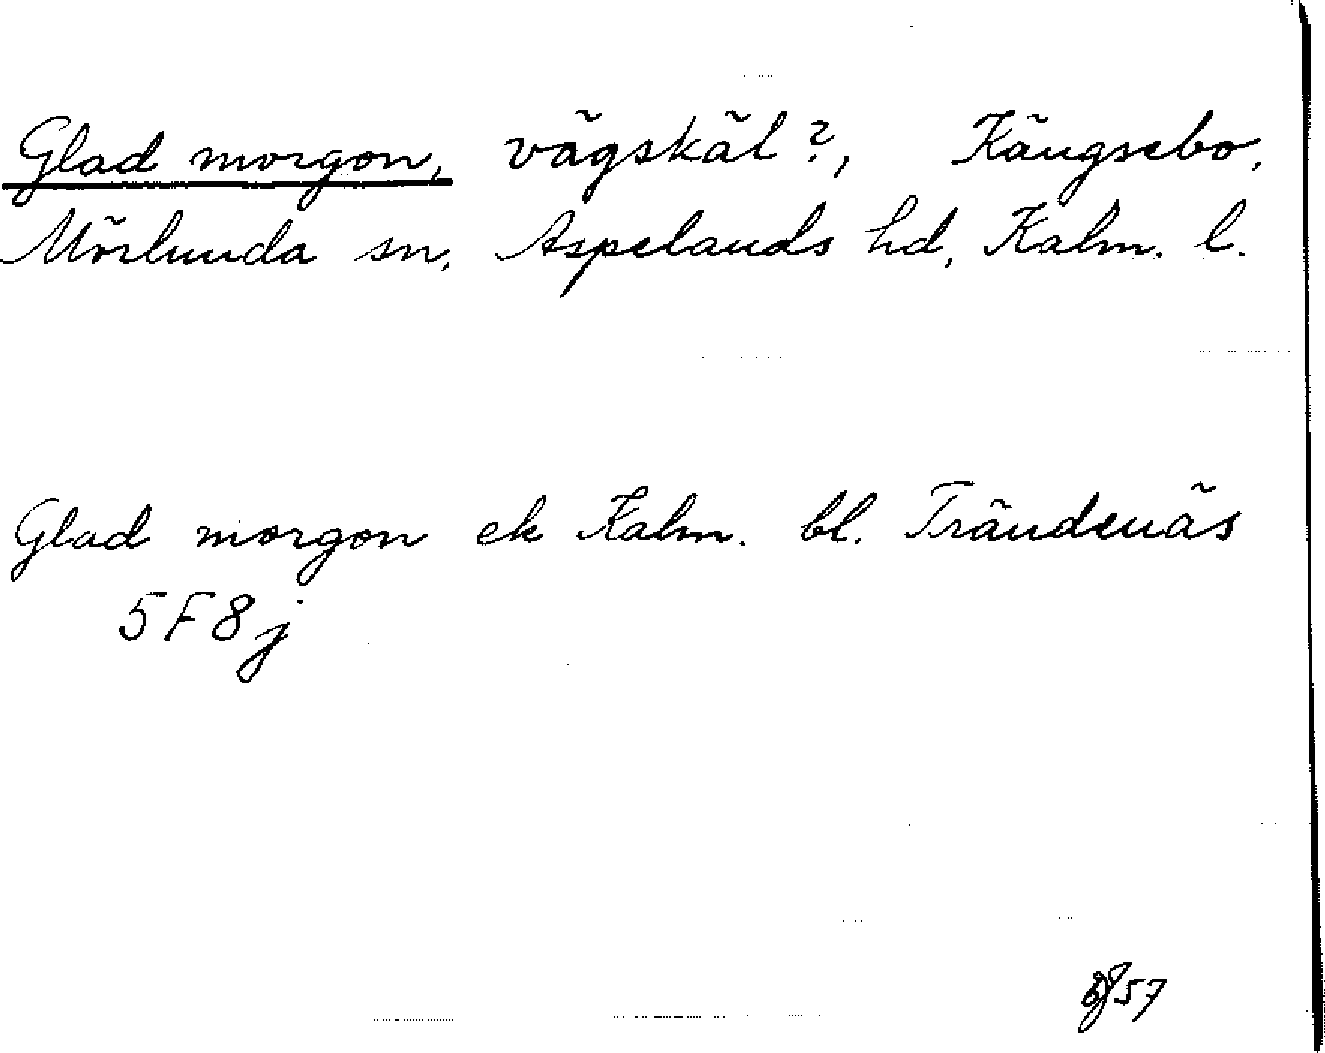 Glad morgon, vägskäl?, Kängsebo,
Mörlunda sn, Aspelands hd, Kalm. l.
Glad morgon ek Kalm. bl. Trändenäs
5F8j
57